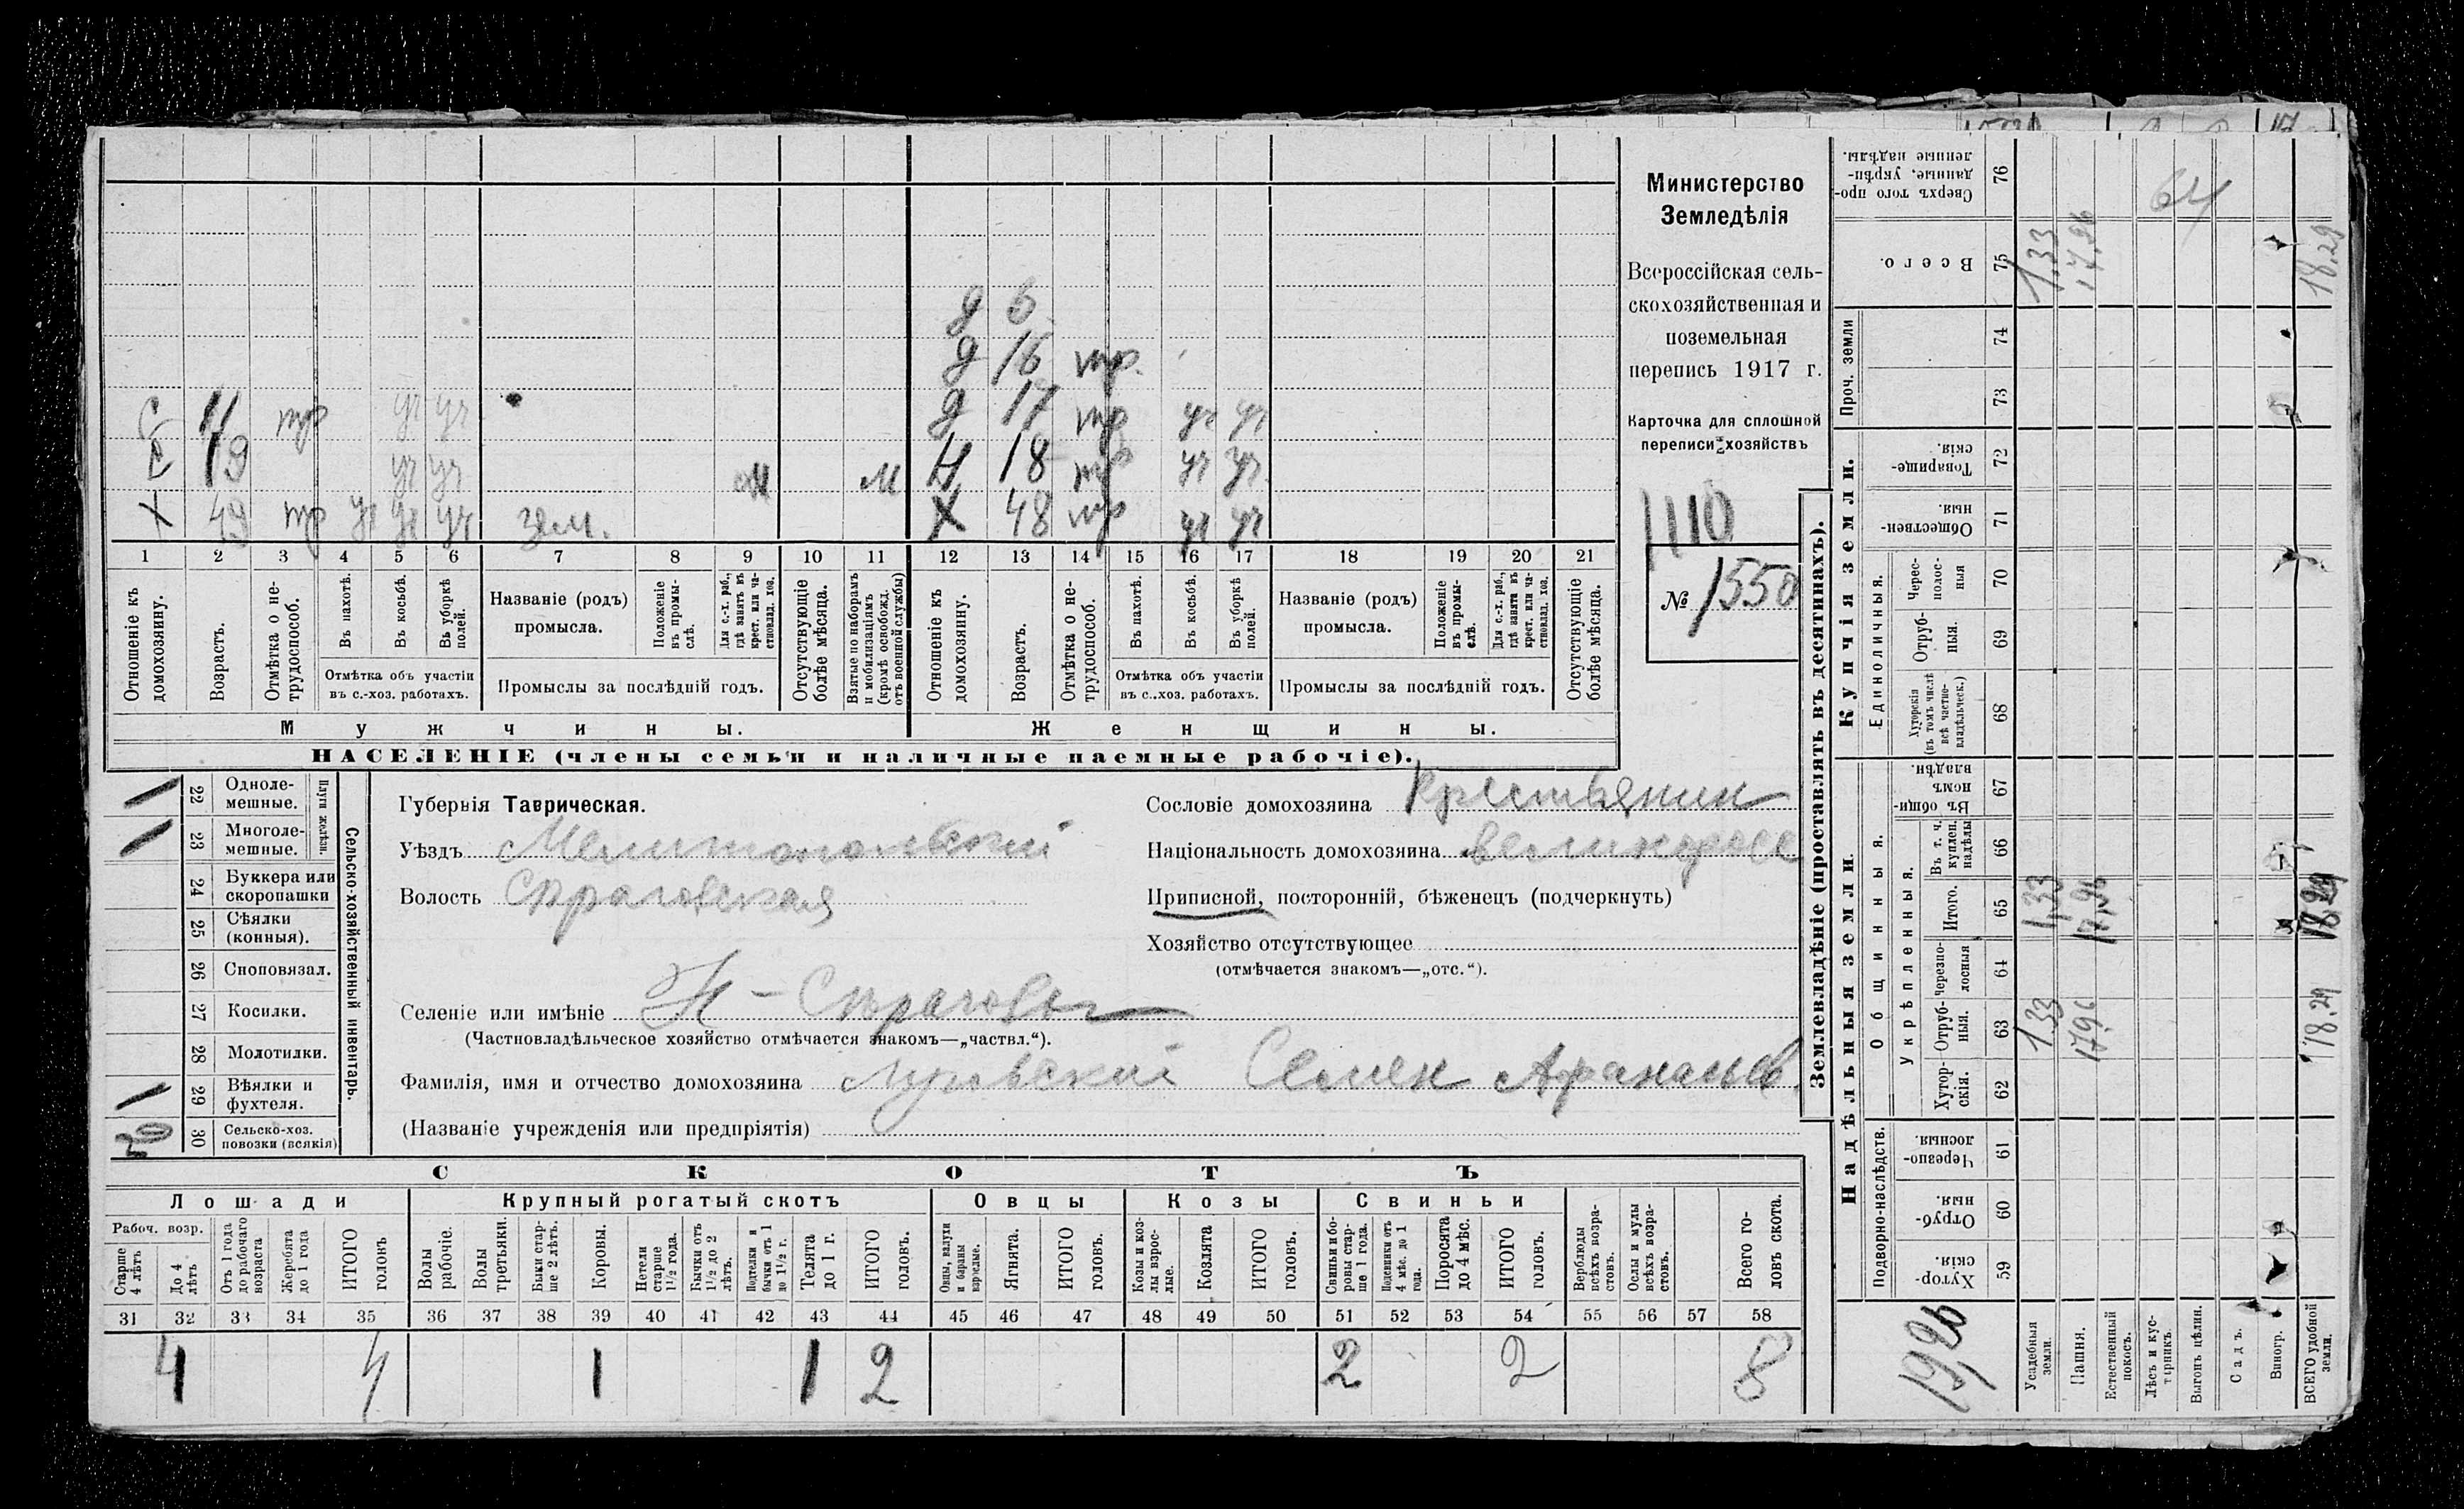 Министерство
Земледѣлія
Всероссійская сель-
скохозяйственная и
поземельная
перепись 1917 г.
Карточка для сплошной
переписи хозяйствъ
1110
№ 1550
д 6
д 16 тр.
С 11 тр уч уч д 17 тр уч уч
С 19 уч уч М М Н 18 тр уч уч
Х 49 тр уч уч уч зем. Х 48 тр уч уч
1 2 3 4 5 6 7 8 9 10 11 12 13 14 15 16 17 18 19 20 21
Отношеніе къ домохозяину.
Возрастъ.
Отмѣтка о не-трудоспособ.
Въ пахотѣ.
Въ косьбѣ.
Въ уборкѣ полей.
Отмѣтка объ участіи въ с.-хоз. работахъ.
Названіе (родъ) промысла.
Положеніе въ промы-слѣ.
Для с.-х. раб., гдѣ занятъ въ крест. или ча-стновлад. хоз.
Промыслы за послѣдній годъ.
Отсутствующіе болѣе мѣсяца.
Взятые по наборамъ и мобилизаціямъ (кромѣ освобожд. отъ военной службы)
Отношеніе къ домохозяину.
Возрастъ.
Отмѣтка о не-трудоспособ.
Въ пахотѣ.
Въ косьбѣ.
Въ уборкѣ полей.
Отмѣтка объ участіи въ с.-хоз. работахъ.
Названіе (родъ) промысла.
Положеніе въ промы-слѣ.
Для с.-х. раб., гдѣ занята въ крест. или ча-стновлад. хоз.
Промыслы за послѣдній годъ.
Отсутствующіе болѣе мѣсяца.
Мужчины. Женщины.
НАСЕЛЕНІЕ (члены семьи и наличные наемные рабочіе).
Сельско-хозяйственный инвентарь.
Плуги желѣзн.
1 22 Одноле-мешные.
1 23 Многоле-мешные.
24 Буккера или скоропашки
25 Сѣялки (конныя).
26 Сноповязал.
27 Косилки.
28 Молотилки.
1 29 Вѣялки и фухтеля.
30 Сельско-хоз. повозки (всякія)
Губернія Таврическая.
Уѣздъ Мелитопольскій
Волость
Сословіе домохозяина Крестьянин
Національность домохозяина великоросс
Приписной, посторонній, бѣженецъ (подчеркнуть)
Хозяйство отсутствующее
(отмѣчается знакомъ—„отс.“).
Селеніе или имѣніе
(Частновладѣльческое хозяйство отмѣчается знакомъ—„частвл.“).
Фамилія, имя и отчество домохозяина Семен Афанасьев
(Названіе учрежденія или предпріятія)
СКОТЪ
Лошади Крупный рогатый скотъ Овцы Козы Свиньи
Рабоч. возр.
Старше 4 лѣтъ
До 4 лѣтъ
Отъ 1 года до рабочаго возраста
Жеребята до 1 года
ИТОГО головъ
Волы рабочіе.
Волы третьяки.
Быки стар-ше 2 лѣтъ.
Коровы.
Нетели старше 1½ года.
Бычки отъ 1½ до 2 лѣтъ.
Подтелки и бычки отъ 1 до 1½ г.
Телята до 1 г.
ИТОГО головъ.
Овцы, валухи и бараны взрослые.
Ягнята.
ИТОГО головъ.
Козы и коз-лы взрос-лые.
Козлята
ИТОГО головъ.
Свиньи и бо-ровы стар-ше 1 года.
Подсвинки отъ 4 мѣс. до 1 года.
Поросята до 4 мѣс.
ИТОГО головъ.
Верблюды всѣхъ возра-стовъ.
Ослы и мулы всѣхъ возра-стовъ.
Всего го-ловъ скота.
31 32 33 34 35 36 37 38 39 40 41 42 43 44 45 46 47 48 49 50 51 52 53 54 55 56 57 58
4 4 1 1 2 2 2 8
Землевладѣніе (проставлять въ десятинахъ).
Надѣльныя земли. Купчія земли. Проч. земли
Подворно-наслѣдств.
Общинныя.
Укрѣпленныя.
Единоличныя.
Хутор-скія. 59
Отруб-ныя. 60
Черезпо-лосныя 61
Хутор-скія. 62
Отруб-ныя. 63
Черезпо-лосныя 64
Итого. 65
Въ т. ч. куплен. надѣлы 66
Въ общин-номъ владѣн. 67
Хуторскія (въ томъ числѣ всѣ частно-владѣльческ.) 68
Отруб-ныя. 69
Черес-полос-ныя 70
Обществен-ныя. 71
Товарище-скія. 72
73
74
Всего. 75
Сверхъ того про-данные, укрѣп-ленные надѣлы. 76
Усадебныя земли. 1,33 1,33 1,33
Пашня. 17,96 17,96 17,96
Естественный покосъ.
Лѣсъ и кус-тарникъ.
Выгонъ цѣлин.
Садъ.
Виногр.
ВСЕГО удобной земли. 18.29 18.29 18.29
19,26
64